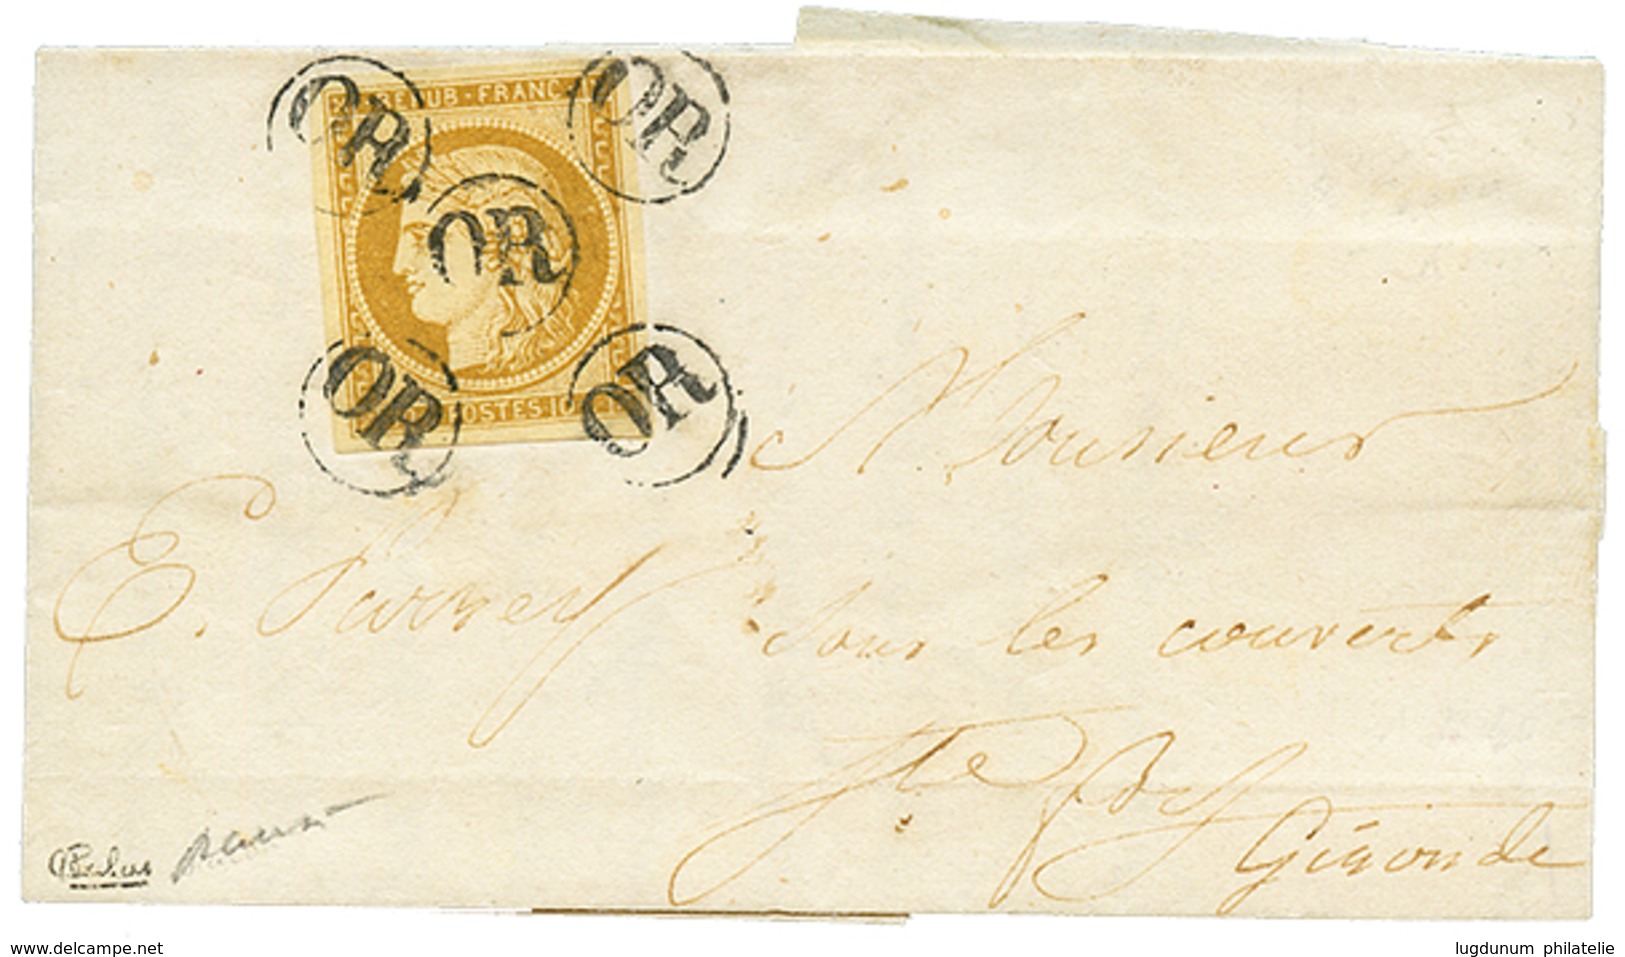 REPUB · FRANC
OR
OR
OR
OR
OR
POSTES · 10
Monsieur
E.
sous les couverts
Ste
Gironde
www.delcampe.net
lugdunum philatelie